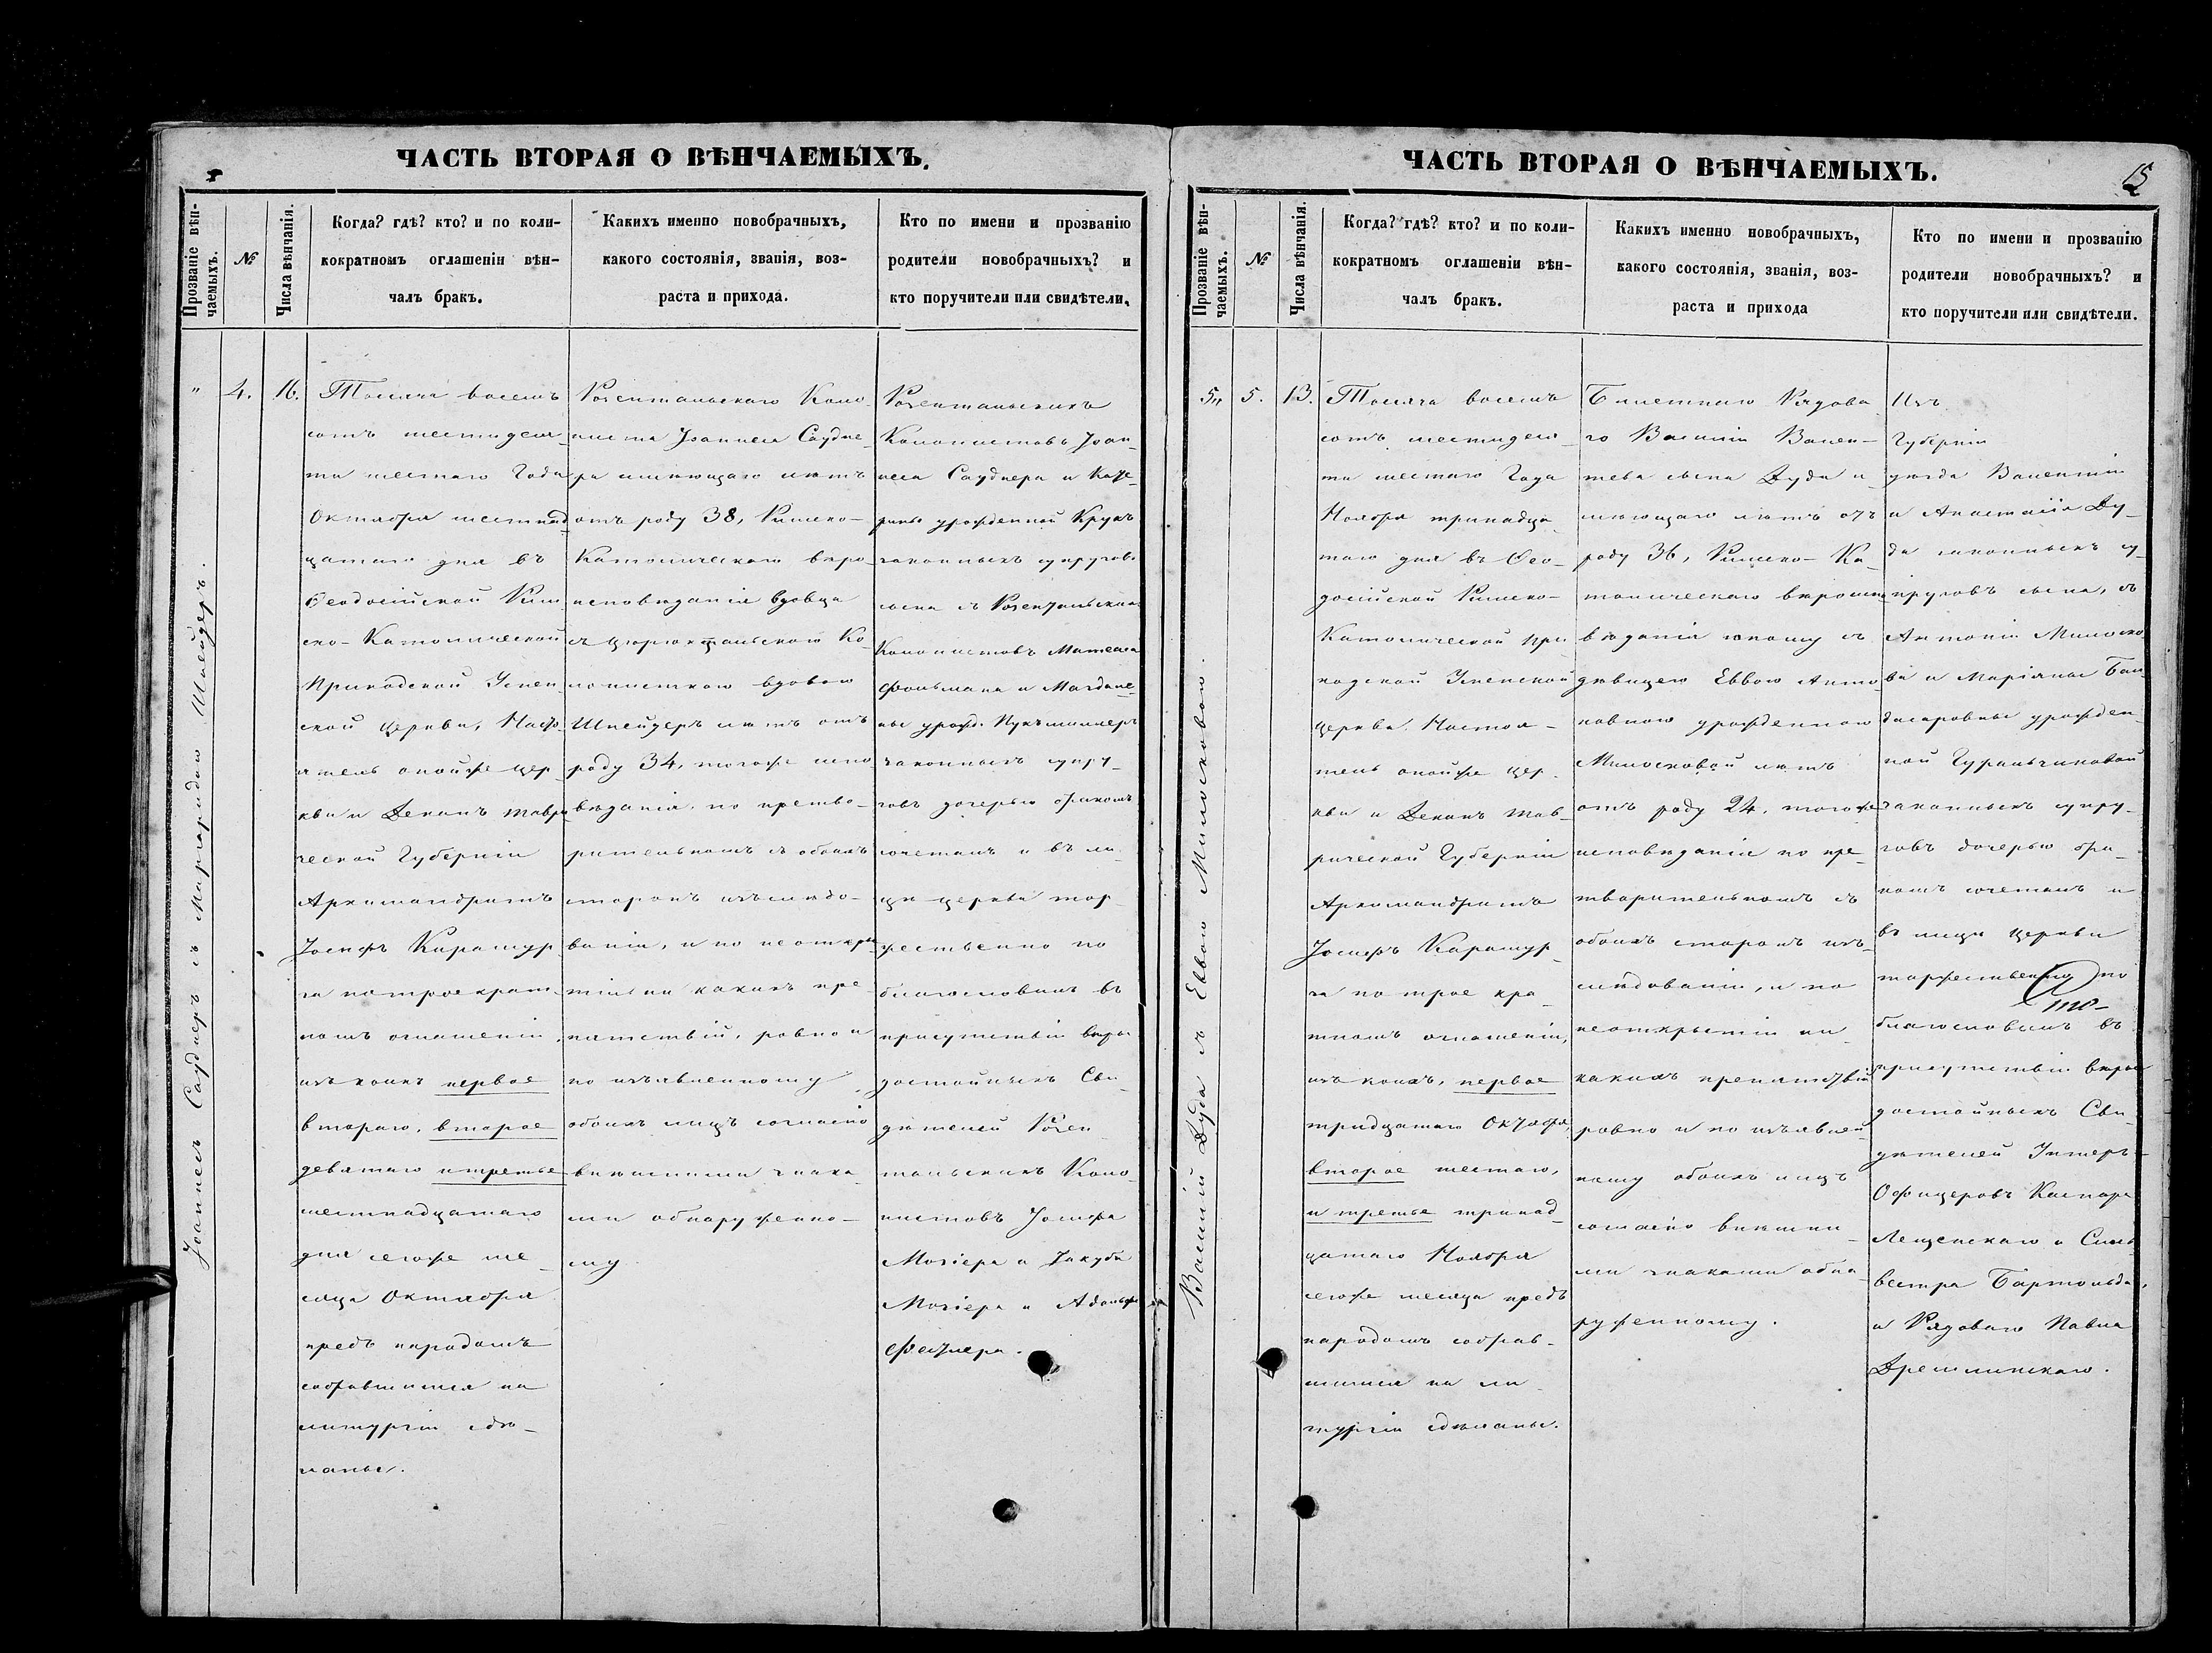 ЧАСТЬ ВТОРАЯ О ВѢНЧАЕМЫХЪ.
Прозваніе вѣн-
чаемыхъ.
№
Числа вѣнчанія.
Когда? гдѣ? кто? и по коли-
кократномъ оглашеніи вѣн-
чалъ бракъ.
Какихъ именно новобрачныхъ,
какого состоянія, званія, воз-
раста и прихода.
Кто по имени и прозванію
родители новобрачныхъ? и
кто поручители или свидѣтели.
Іоаннесъ Сауднеръ съ Маргаридою Шнейдеръ.
"
4.
16.
Тысяча восемь
сотъ шестидеся-
ти шестаго Года
Октября шестнад
цатаго дня въ
Ѳеодосійской Рим
ско-Католической
Приходской Успен
ской церкви, Насто
ятель оной же цер
кви и Деканъ Таври
ческой Губерніи
Архимандритъ
Іосифъ Карашур
га по троекрат
номъ оглашеніи,
изъ коихъ первое
втораго, второе
девятаго и третье
шестнадцатаго
дня сегоже ме-
сяца Октября
предъ народомъ
собравшимся на
литургіи сдѣ-
ланы.
Розентальскаго Коло
ниста Іоаннеса Саудне-
ра имѣющаго лѣтъ
отъ роду 38, Римско-
Католическаго вѣро
исповѣданія вдовца
съ Цюрихтальскою Ко
лонисткою вдовою
Шнейдеръ лѣтъ отъ
роду 34, тогоже испо
вѣданія, по предва-
рительномъ съ обоихъ
сторонъ изъслѣдо-
ваніи, и по неоткры
тіи ни какихъ пре
пятствій, ровно и
по изъявленному
обоихъ лицъ согласію
внѣшними знака
ми обнаруженно-
му.
Розентальскихъ
Колонистовъ Іоан-
неса Сауднера и Кате-
рины урожденной Крукъ
законныхъ супруговъ
сына съ Розентальскихъ
Колонистовъ Матеаса
Фольмана и Магдале
ны урожд.
законныхъ супру-
говъ дочерью бракомъ
сочеталъ и въ ли
цѣ церкви тор
жественно по
благословилъ въ
присутствіи вѣро
достойныхъ Сви
дѣтелей Розен
тальскихъ Коло
нистовъ Іосифа
Мозіера и Якуба
Мозіера и Адольфа

ЧАСТЬ ВТОРАЯ О ВѢНЧАЕМЫХЪ.
15
Прозваніе вѣн-
чаемыхъ.
№
Числа вѣнчанія.
Когда? гдѣ? кто? и по коли-
кократномъ оглашеніи вѣн-
чалъ бракъ.
Какихъ именно новобрачныхъ,
какого состоянія, званія, воз-
раста и прихода
Кто по имени и прозванію
родители новобрачныхъ? и
кто поручители или свидѣтели.
Василій Дуда съ Еввою Милосковою.
5"
5.
13.
Тысяча восемь
сотъ шестидеся-
ти шестаго Года
Ноября тринадца
таго дня въ Ѳео-
досійской Римско-
Католической При
ходской Успенской
церкви Настоя-
тель оной же цер
кви и Деканъ Тав-
рической Губерніи
Архимандритъ
Іосифъ Карашур
га по трое кра
тномъ оглашеніи,
изъ коихъ, первое
тридцатаго Октября,
второе шестаго,
и третье тринад
цатаго Ноября
сегоже месяца предъ
народомъ собрав-
шимся на ли
тургіи сдѣланы.
Билетнаго Рядова
го Василія Вален-
тева сына Дуда и
мѣющаго лѣтъ отъ
роду 36, Римско-Ка-
толическаго вѣроиспо
вѣданія юношу съ
дѣвицею Еввою Анто
новною урожденною
Милосковой лѣтъ
отъ роду 24, тогоже
исповѣданія по пре-
тварительномъ съ
обоихъ сторонъ изъ-
слѣдованіи, и по
неоткрытіи ни
какихъ препятствій
ровно и по изъявлен
ному обоихъ лицъ
согласію внѣшни
ми знаками обна
руженному.
Изъ
Губерніи
уѣзда Валентія
и Анастасіи Ду-
да законныхъ су-
пруговъ сына, съ
Антонія Милоско
ва и Маріянны Бал
урожден
ной
законныхъ супру-
говъ дочерью бра
комъ сочеталъ и
въ лицѣ церкви
торжественно по
благословилъ въ
присутствіи вѣро
достойныхъ Сви
дѣтелей Унтеръ-
Офицеровъ Каспара
Лещенскаго и Силь
вестра Бартольда,
и Рядоваго Павла